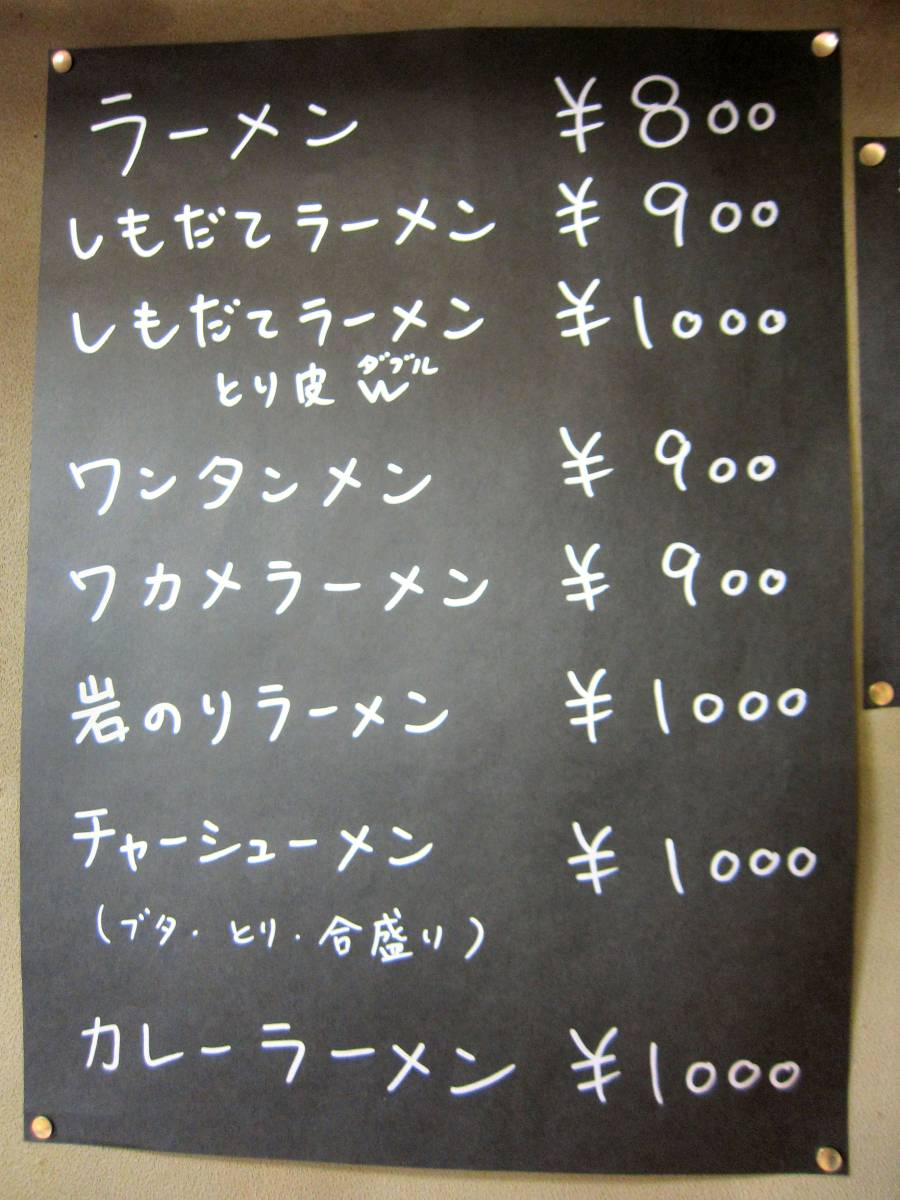 ラーメン ¥800
しもだてラーメン ¥900
しもだてラーメン ¥1000
ダブル
とり皮 W
ワンタンメン ¥900
ワカメラーメン ¥900
岩のりラーメン ¥1000
チャーシューメン ¥1000
(ブタ・とり・合盛り)
カレーラーメン ¥1000